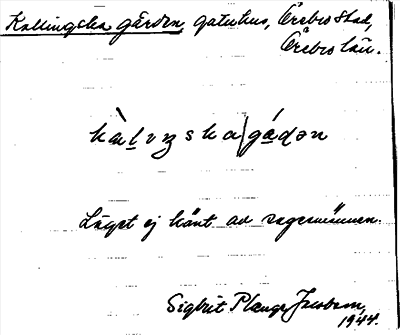 Kallingska gården, gatuhus, Örebro stad,
Örebro län.
kàlıŋska/gádən
Läget ej känt av sagesmännen.
Sigbrit Plange Jacobson,
1944.